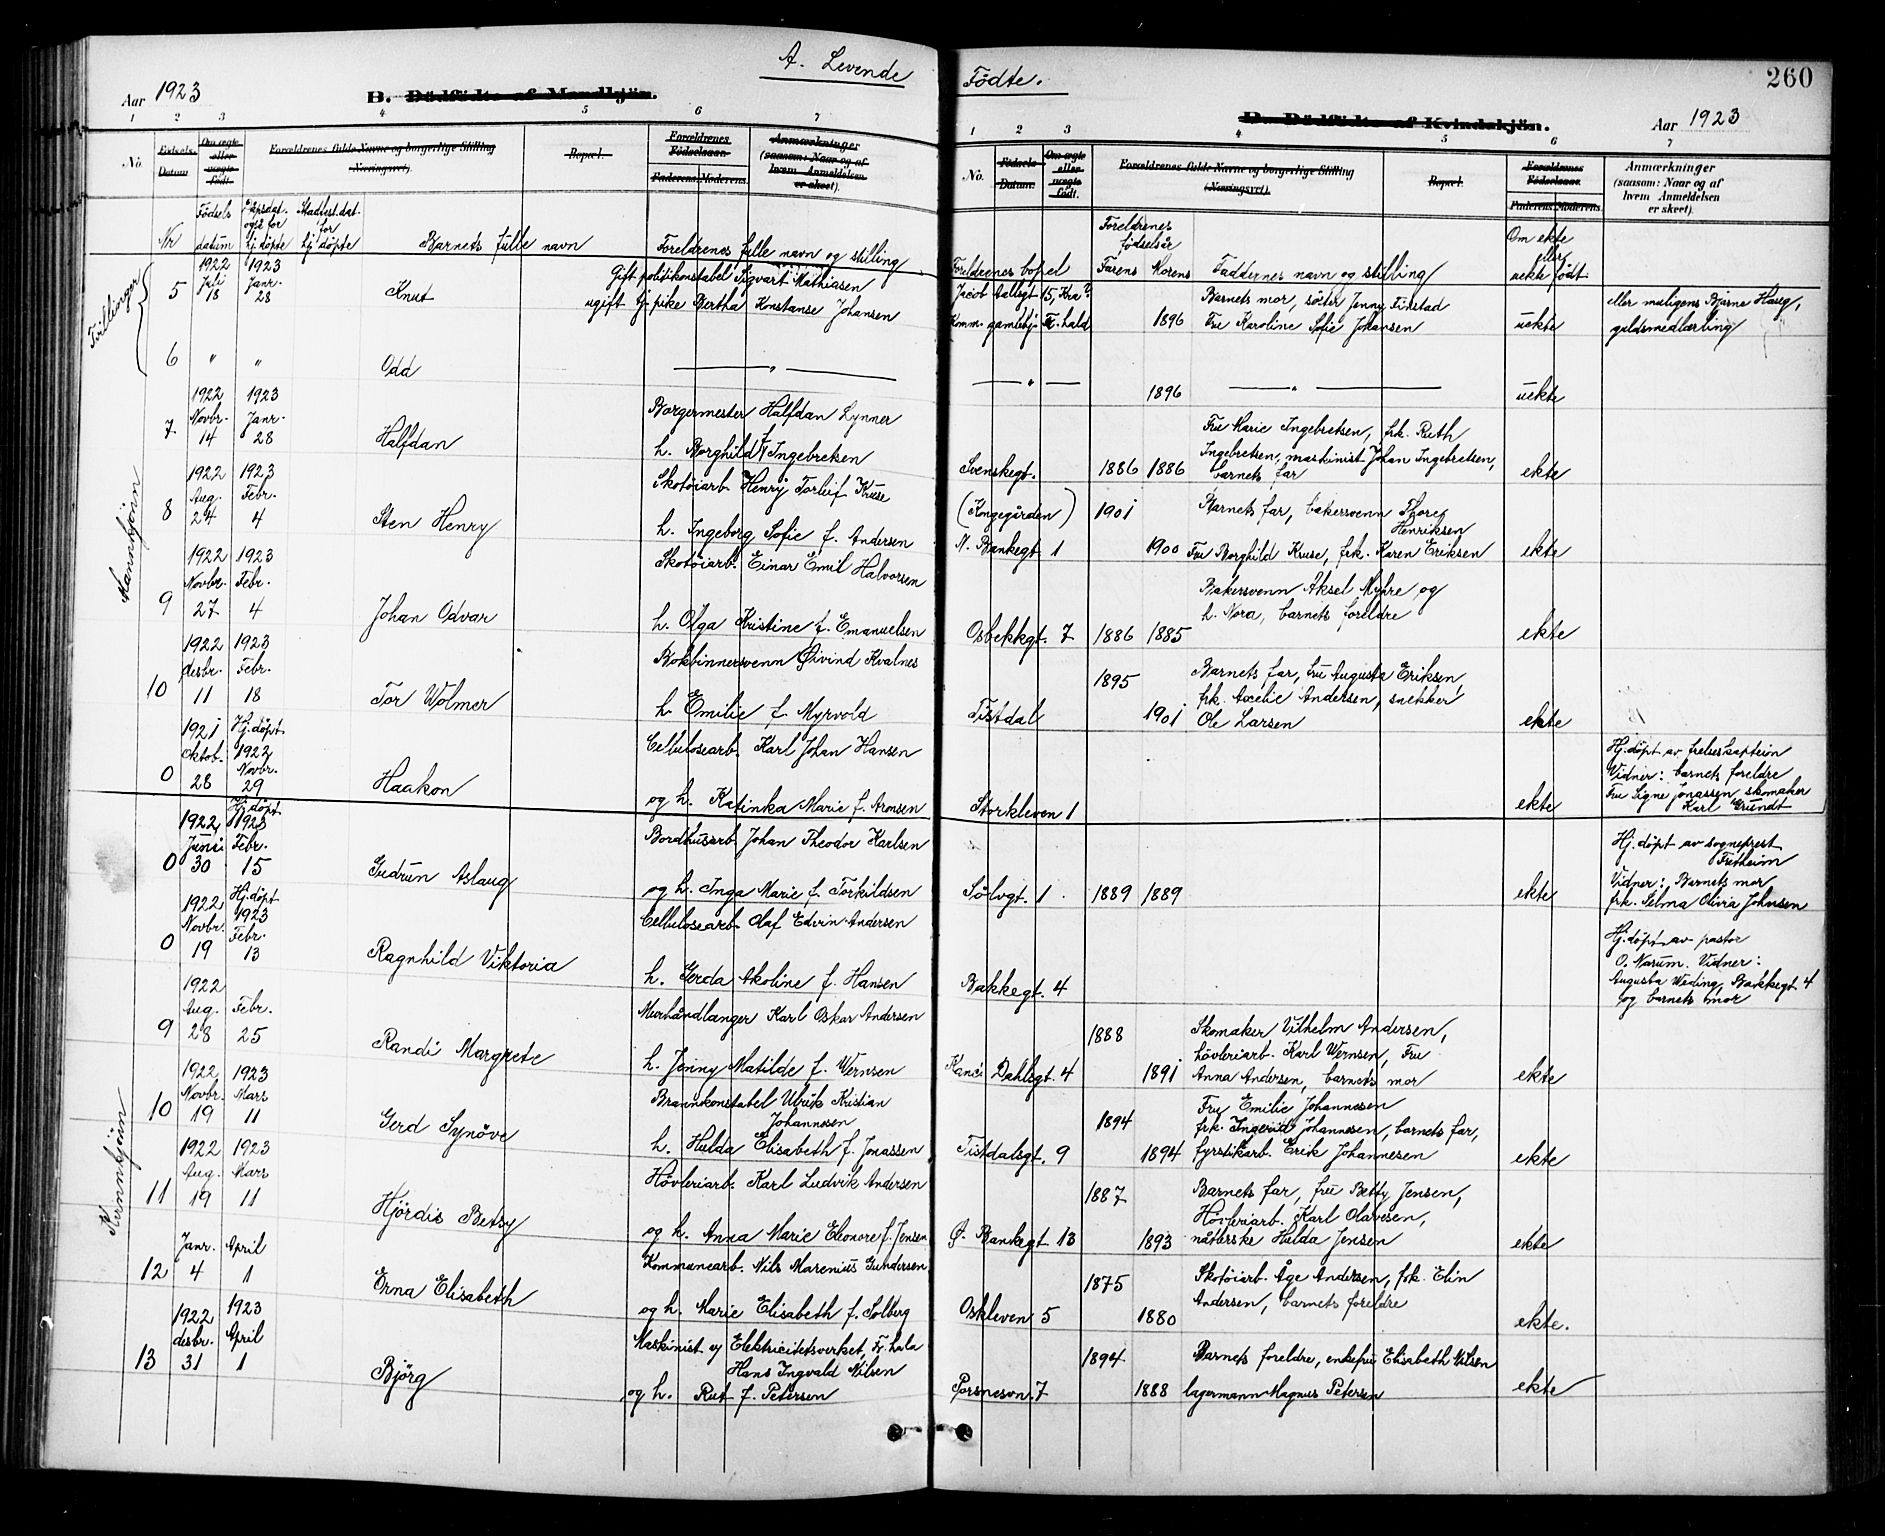 A. Levende
Födte.
260
Aar 1923
B. Dödfödte af Mandkjön.
D. Dödfödte af Kvindekjön.
Aar 1923
1 2 3 4 5 6 7
1 2 3 4 5 6 7
No. Födsels-Datum. Om ægte eller uægte født. Forældrenes fulde Navne og borgerlige Stilling (Næringsvei). Bopæl. Forældrenes Födselsaar. Faderens. Moderens. Anmærkninger (saasom: Naar og af hvem Anmeldelsen er skeet).
No. Födsels-Datum. Om ægte eller uægte født. Forældrenes fulde Navne og borgerlige Stilling (Næringsvei). Bopæl. Forældrenes Födselsaar. Faderens. Moderens. Anmærkninger (saasom: Naar og af hvem Anmeldelsen er skeet).
Nr Födsels datum Dåpsdat. også for hj. döpte Stadfest. dat. for hj. döpte Barnets fulle navn Foreldrenes fulle navn og stilling
Foreldrenes bopel Foreldrenes födselsår Farens Morens Faddernes navn og stilling Om ekte eller uekte født
Tvillinger
Mannkjönn
5 1922 Juli 18 1923 Janr. 28 Knut
Gift politikonstabel Sigvart Mathiasen
ugift hj. pike Bertha Konstanse Johansen
Jacob Aallsgt 15, Kra?
Komm. gamlehj. Fr.hald 1896
Barnets mor, söster Jenny Fikstad
Fru Karoline Sofie Johansen
uekte
eller muligens Bjarne Haug,
guldsmedlærling
6 " " Odd — " — — " — 1896 — " — uekte
7 1922 Novbr. 14 1923 Janr. 28 Halfdan
Borgermester Halfdan Lynner
h. Borghild f. Ingebretsen
Svenskegt. 1886 1886
Fru Marie Ingebretsen, frk. Ruth
Ingebretsen, maskinist Johan Ingebretsen,
barnets far
ekte
8 1922 Aug. 24 1923 Febr. 4 Sten Henry
Skotöiarb. Henry Torleif Kruse
h. Ingeborg Sofie f. Andersen
(Kongegården)
N. Bankegt 1 1901 1900
Barnets far, bakersvenn Thoreg
Henriksen
Fru Borghild Kruse, frk. Karen Eriksen
ekte
9 1922 Novbr. 27 1923 Febr. 4 Johan Odvar
Skotöiarb. Einar Emil Halvorsen
h. Olga Kristine f. Emanuelsen
Osbekkgt. 7 1886 1885
Bakersvenn Aksel Myhre og
h. Nora, barnets foreldre
ekte
10 1922 desbr. 11 1923 Febr. 18 Tor Wolmer
Bokbinnersvenn Öivind Kvalnes
h. Emilie f. Myrvold
Tistdal 1895 1901
Barnets far, fru Augusta Eriksen,
frk. Axelie Andersen, snekker
Ole Larsen
ekte
0 1921 Oktob. 28 Hj. döpt 1922 Novbr. 29 Haakon
Cellulosearb. Karl Johan Hansen
og h. Katinka Marie f. Aronsen
Storkleven 1
ekte
Hj. döpt av frelseskaptein
Vidner: barnets foreldre
Fru Signe Jonassen, skomaker
Karl Grundt
Kvinnkjönn
0 1922 Juni 30 Hj. döpt 1923 Febr. 15 Gudrun Aslaug
Bordhusarb. Johan Theodor Karlsen
og h. Inga Marie f. Torkildsen
Sölvgt. 1 1889 1889
ekte
Hj. döpt av sogneprest
Fretheim
Vidner: Barnets mor
frk. Selma Olivia Johnsen
0 1922 Novbr. 19 Hj. döpt 1923 Febr. 13 Ragnhild Viktoria
Cellulosearb. Olaf Edvin Andersen
h. Gerda Akoline f. Hansen
Bakkegt. 4
Hj. döpt av pastor
O. Narum. Vidner:
Augusta Weding, Bakkegt 4
og barnets mor
9 1922 Aug. 28 Febr. 25 Randi Margrete
Murhåndlanger Karl Oskar Andersen
h. Jenny Matilde f. Wernsen
Dahlsgt. 4 1888 1891
Skomaker Vilhelm Andersen,
hövleriarb. Karl Wernsen, Fru
Anna Andersen, barnets mor
ekte
10 1922 Novbr. 19 1923 Mars 11 Gerd Synöve
Brannkonstabel Ulrik Kristian
Johannesen
h. Hulda Elisabeth f. Jonassen
Tistdalsgt. 9 1894 1894
Fru Emilie Johannesen
frk. Ingerid Johannesen, barnets far,
fyrstikarb. Erik Johannesen
ekte
11 1922 Aug. 19 1923 Mars 11 Hjördis Betsy
Hövleriarb. Karl Ludvik Andersen
og h. Anna Marie Eleonore f. Jensen
Ö. Bankegt 13 1887 1893
Barnets far, fru Betty Jensen,
Hövleriarb. Karl Olavesen,
nåterske Hulda Jensen
ekte
12 Janr. 4 April 1 Erna Elisabeth
Kommunearb. Nils Marenius Gundersen
og h. Marie Elisabeth f. Solberg
Oskleven 5 1875 1880
Skotöiarb. Åge Andersen, frk. Elin
Andersen, barnets foreldre
ekte.
13 1922 desbr. 31 1923 April 1 Björg
Maskinist v/ Elektricitetsverket, Fr.hald
Hans Ingvald Nilsen
og h. Rut f. Petersen
Porsnesvn. 7 1894 1888
Barnets foreldre, enkefru Elisabeth Nilsen
lagermann Magnus Petersen
ekte